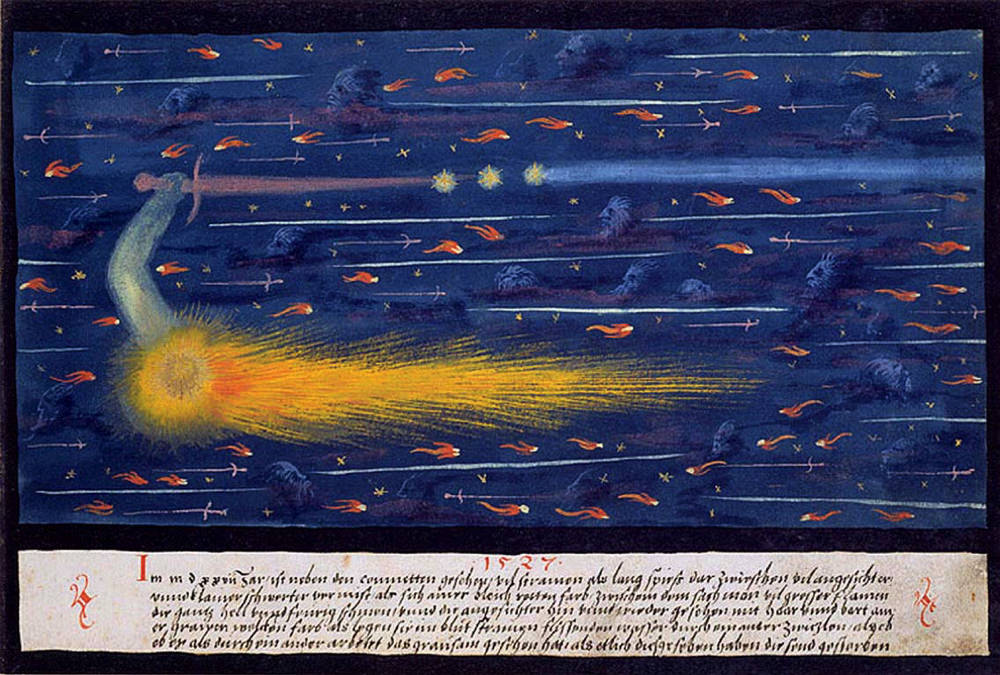 1527.
Im m d xxvii Jar ist neben den cometten gesehen vil straimen als lang spiess dar zwischen vil angesichter
vnnd klainer schwerter vermist als sich ainer bleich rotten farb zwischen dem sach man vil grosser flamen
die gantz hell vnnd feurig schinen vnnd die angesichter hin vnnd wieder gesehen mit haar vnnd bart an
er grawen wolcken farb als legen sie im blut straimen fliessenden wasser durch ainander
ob er als durch ain ander arbeitet das grausam gesehen hat als etlich die gesehen haben die send gestorben